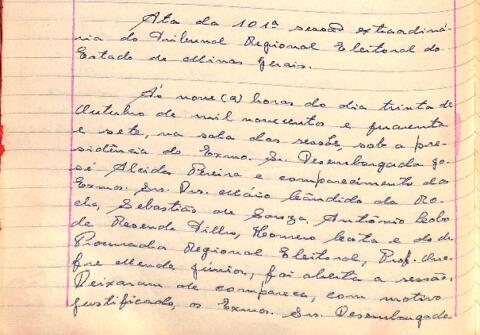 Ata da 101ª sessão extraordiná-
ria do Tribunal Regional Eleitoral do
Estado de Minas Gerais.
Às nove (9) horas do dia trinta de
outubro de mil novecentos e cinquenta
e sete, na sala das sessões, sob a pre-
sidência do Exmo. Sr. Desembargador Jo-
sé Alcides Pereira e comparecimento dos
Exmos. Srs. Drs. Mário Cândido da Ro-
cha, Sebastião de Souza, Antônio Lobo
de Resende Filho, Homero Costa e do dr.
Procurador Regional Eleitoral, Prof. One-
fre Mendes Júnior, foi aberta a sessão.
Deixaram de comparecer, com motivo
justificado, os Exmos. Srs. Desembargado-